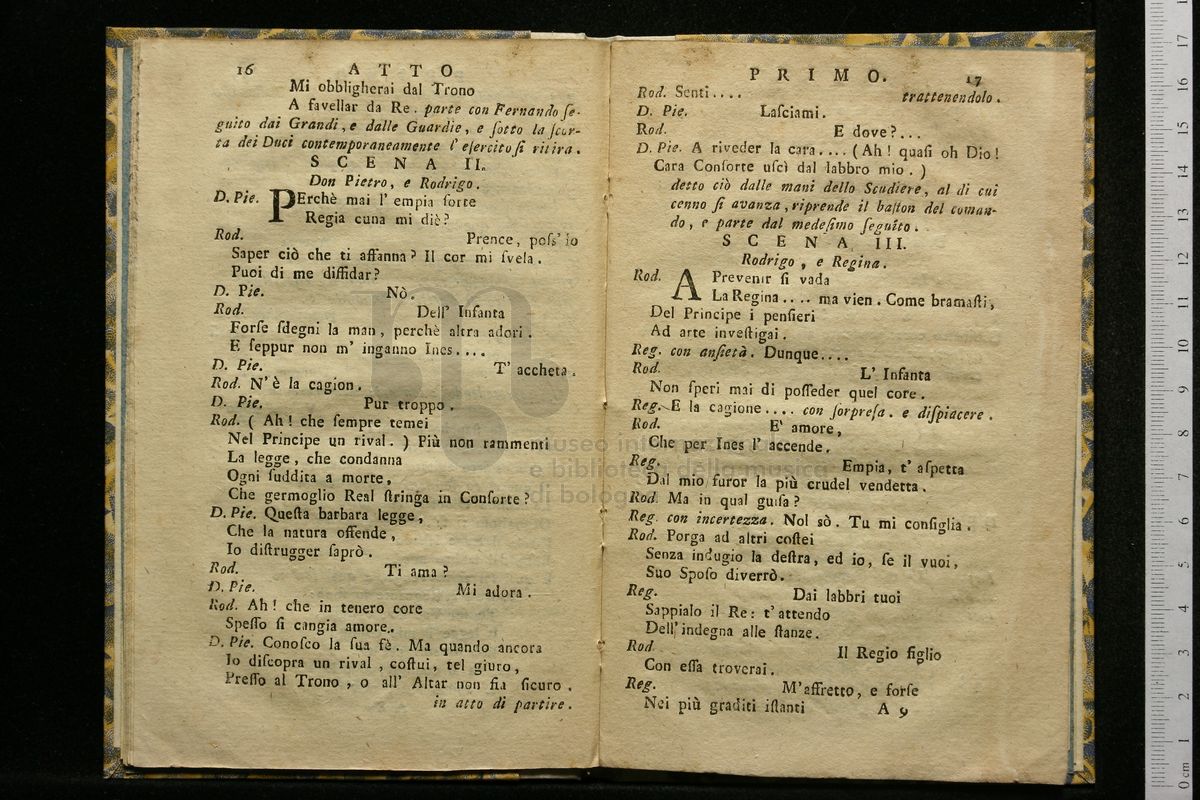 16 ATTO
Mi obbligherai dal Trono
A favellar da Re. parte con Fernando ſe-
guito dai Grandi, e dalle Guardie, e ſotto la ſcor-
ta dei Duci contemporaneamente l' eſercito ſi ritira.
SCENA II.
Don Pietro, e Rodrigo.
D. Pie. PErchè mai l' empia ſorte
Regia cuna mi diè?
Rod. Prence, poſs' io
Saper ciò che ti affanna? Il cor mi ſvela.
Puoi di me diffidar?
D. Pie. Nò.
Rod. Dell' Infanta
Forſe ſdegni la man, perchè altra adori.
E ſeppur non m' inganno Ines....
D. Pie. T' accheta.
Rod. N' è la cagion.
D. Pie. Pur troppo.
Rod. ( Ah! che ſempre temei
Nel Principe un rival. ) Più non rammenti
La legge, che condanna
Ogni ſuddita a morte,
Che germoglio Real ſtringa in Conſorte?
D. Pie. Queſta barbara legge,
Che la natura offende,
Io diſtrugger ſaprò.
Rod. Ti ama?
D. Pie. Mi adora.
Rod. Ah! che in tenero core
Speſſo ſi cangia amore.
D. Pie. Conoſco la ſua fè. Ma quando ancora
Io diſcopra un rival, coſtui, tel giuro,
Preſſo al Trono, o all' Altar non ſia ſicuro.
in atto di partire.
PRIMO. 17
Rod. Senti.... trattenendolo.
D. Pie. Laſciami.
Rod. E dove?...
D. Pie. A riveder la cara.... ( Ah! quaſi oh Dio!
Cara Conſorte uſcì dal labbro mio. )
detto ciò dalle mani dello Scudiere, al di cui
cenno ſi avanza, riprende il baſton del coman-
do, e parte dal medeſimo ſeguito.
SCENA III.
Rodrigo, e Regina.
Rod. A Prevenir ſi vada
La Regina.... ma vien. Come bramaſti,
Del Principe i penſieri
Ad arte inveſtigai.
Reg. con anſietà. Dunque....
Rod. L' Infanta
Non ſperi mai di poſſeder quel core.
Reg. E la cagione.... con ſorpreſa. e diſpiacere.
Rod. E' amore,
Che per Ines l' accende.
Reg. Empia, t' aſpetta
Dal mio furor la più crudel vendetta.
Rod. Ma in qual guiſa?
Reg. con incertezza. Nol sò. Tu mi conſiglia.
Rod. Porga ad altri coſtei
Senza indugio la deſtra, ed io, ſe il vuoi,
Suo Spoſo diverrò.
Reg. Dai labbri tuoi
Sappialo il Re: t' attendo
Dell' indegna alle ſtanze.
Rod. Il Regio figlio
Con eſſa troverai.
Reg. M'affretto, e forſe
Nei più graditi iſtanti A 9
museo internazionale
e biblioteca della musica
di bologna
0 cm 1 2 3 4 5 6 7 8 9 10 11 12 13 14 15 16 17